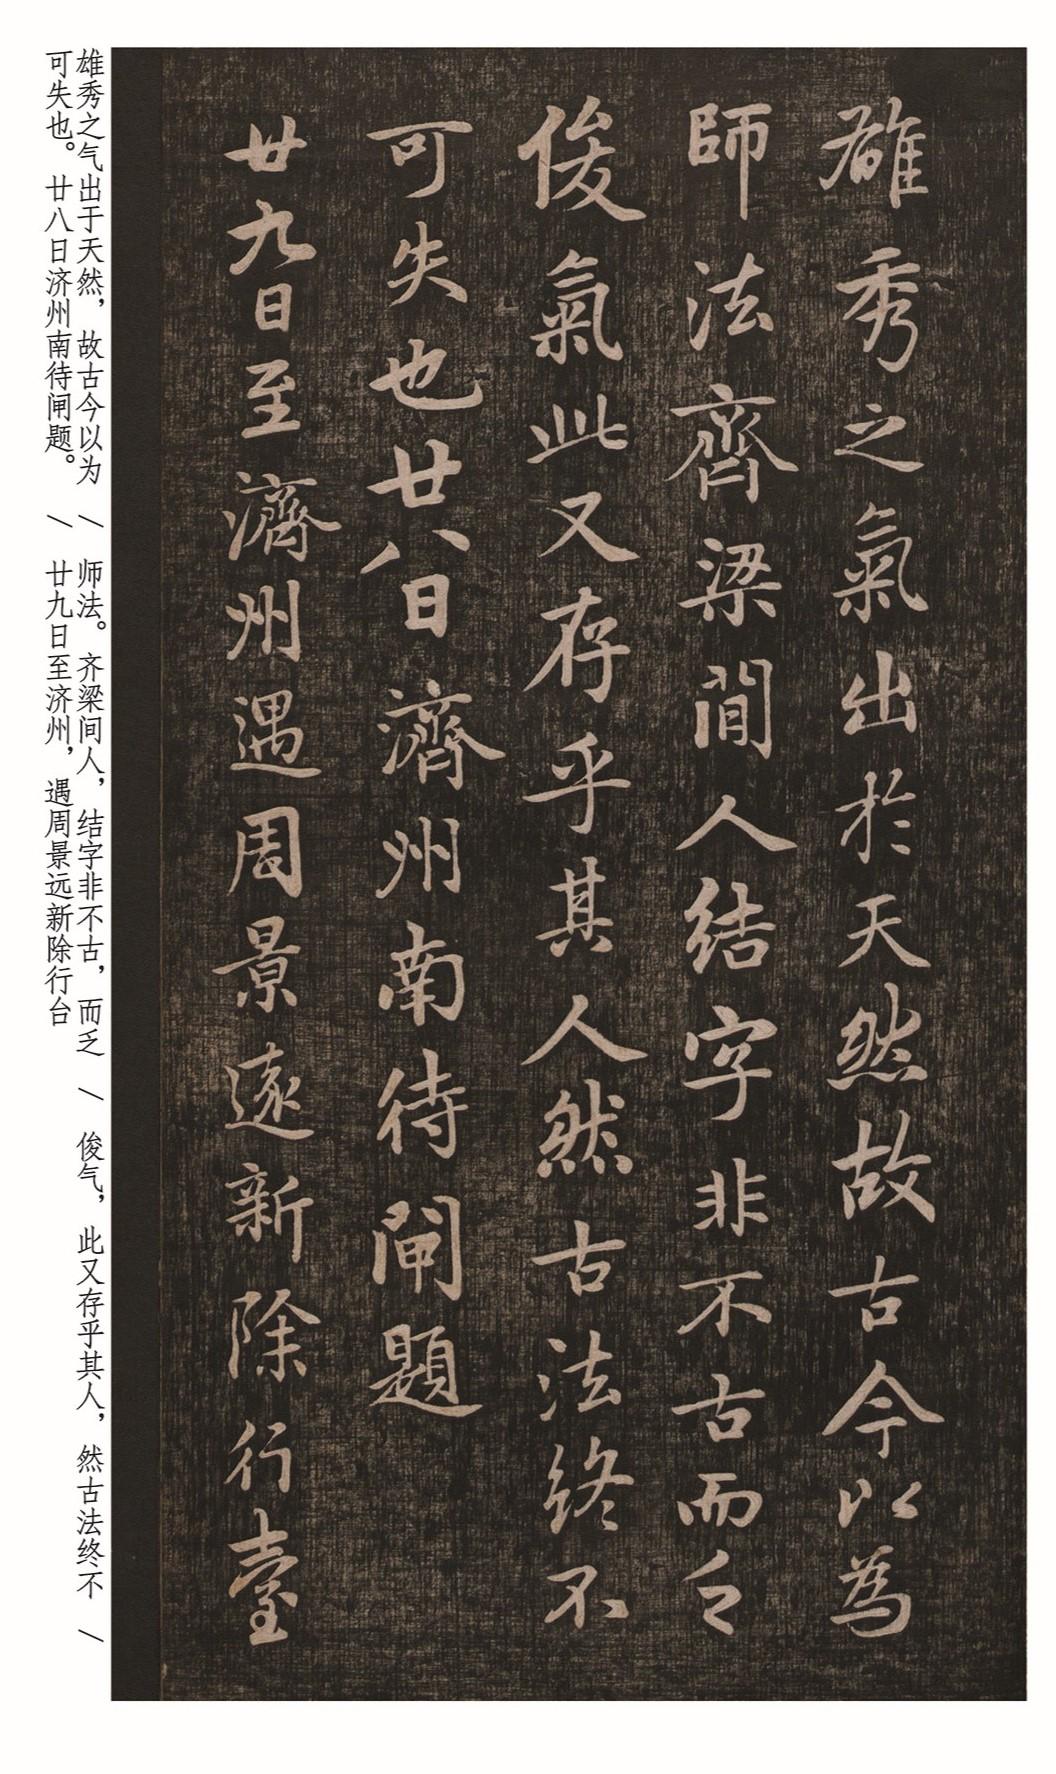 雄秀之氣出於天然故古今以為
師法齊梁間人結字非不古而乏
俊氣此又存乎其人然古法終不
可失也廿八日濟州南待閘題
廿九日至濟州遇周景遠新除行臺
雄秀之气出于天然，故古今以为 / 师法。齐梁间人，结字非不古，而乏 / 俊气，此又存乎其人，然古法终不 /
可失也。廿八日济州南待闸题。 / 廿九日至济州，遇周景远新除行台